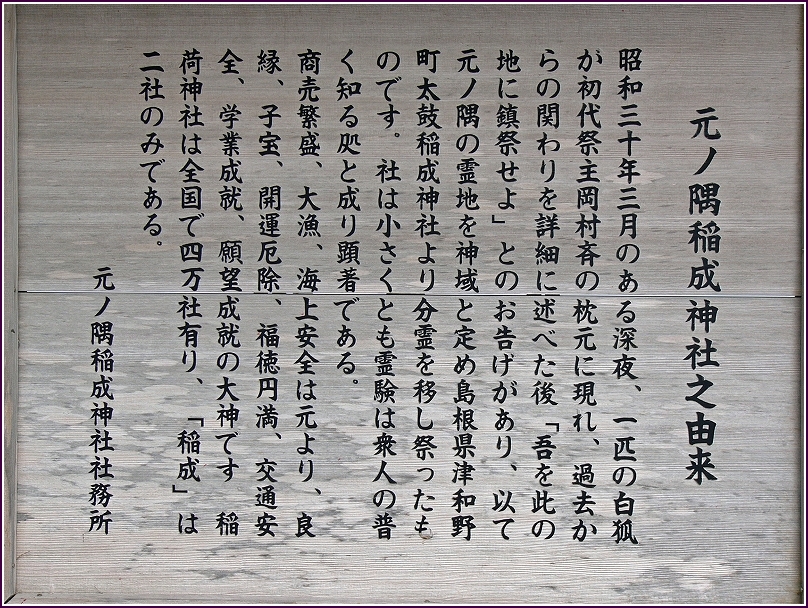 元ノ隅稲成神社之由来
昭和三十年三月のある深夜、一匹の白狐
が初代祭主岡村斉の枕元に現れ、過去か
らの関わりを詳細に述べた後「吾を此の
地に鎮祭せよ」とのお告げがあり、以て
元ノ隅の霊地を神域と定め島根県津和野
町太鼓稲成神社より分霊を移し祭ったも
のです。社は小さくとも霊験は衆人の普
く知る処と成り顕著である。
商売繁盛、大漁、海上安全は元より、良
縁、子宝、開運厄除、福徳円満、交通安
全、学業成就、願望成就の大神です　稲
荷神社は全国で四万社有り、「稲成」は
二社のみである。
元ノ隅稲成神社社務所